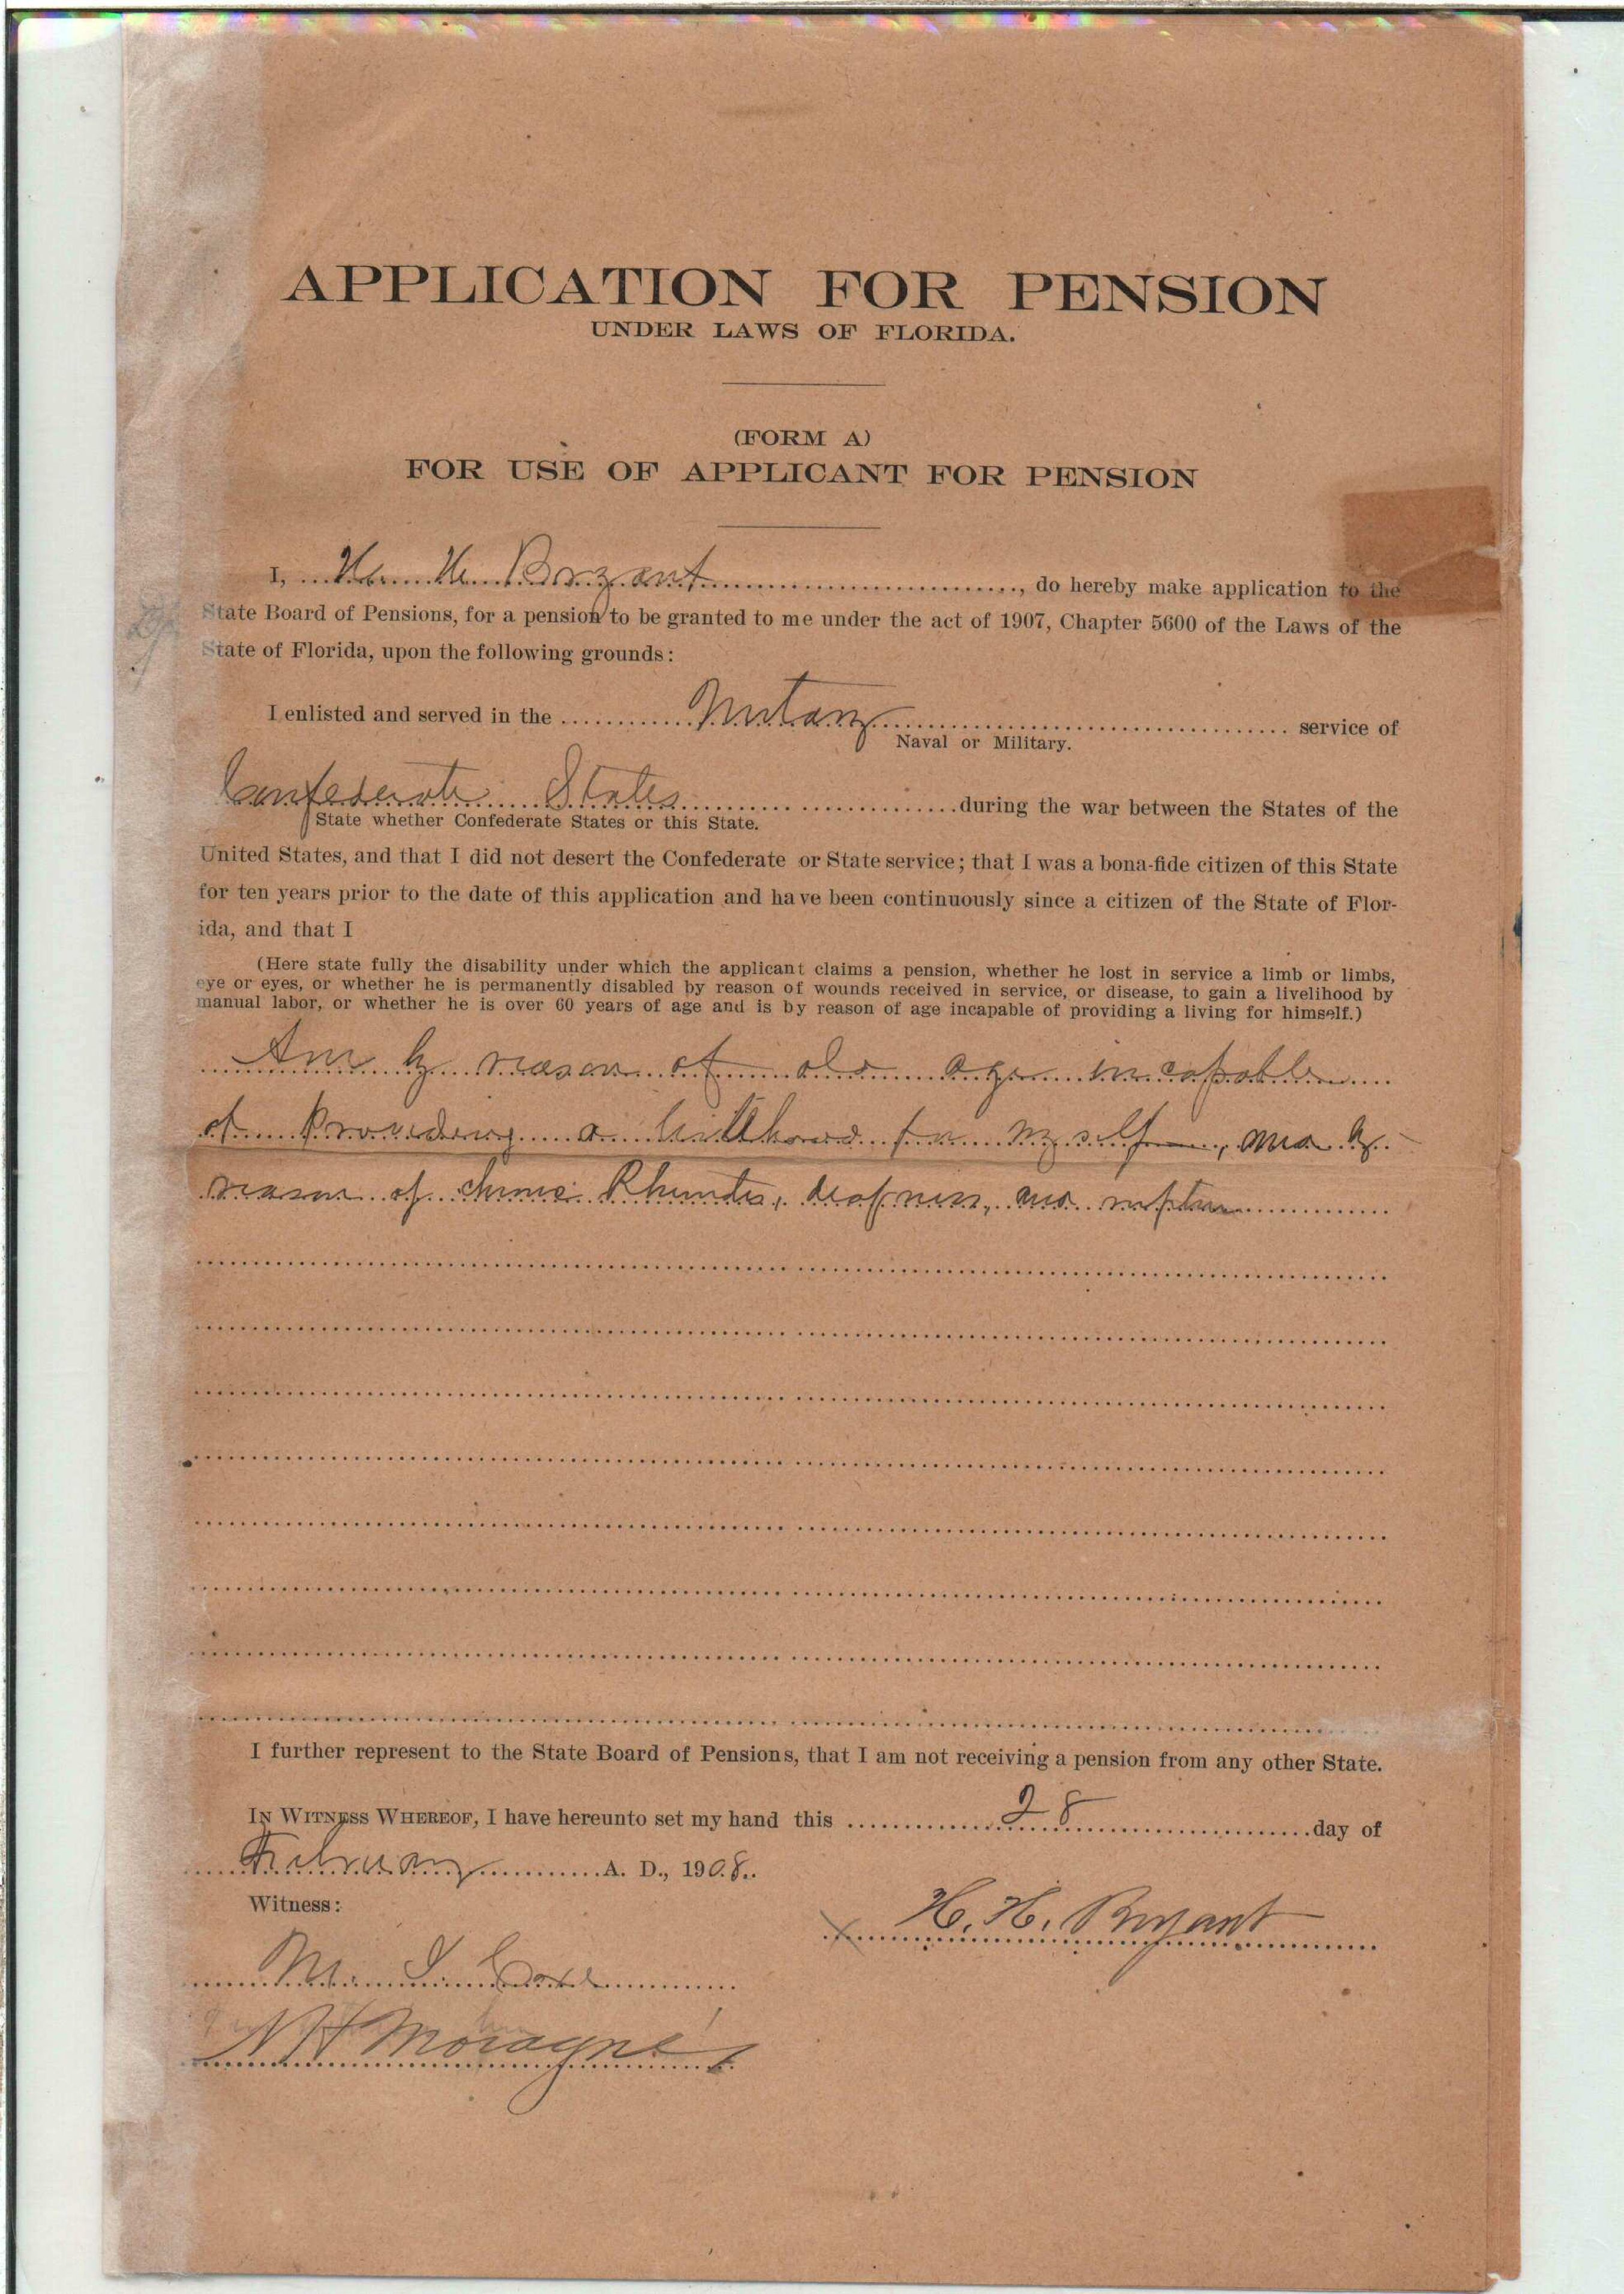 APPLICATION FOR PENSION
UNDER LAWS OF FLORIDA.
(FORM A)
FOR USE OF APPLICANT FOR PENSION
I, H. H. Bryant, do hereby make application to the
State Board of Pensions, for a pension to be granted to me under the act of 1907, Chapter 5600 of the Laws of the
State of Florida, upon the following grounds:
I enlisted and served in the Military service of
Naval or Military.
Confederate States during the war between the States of the
State whether Confederate States or this State.
United States, and that I did not desert the Confederate or State service; that I was a bona-fide citizen of this State
for ten years prior to the date of this application and have been continuously since a citizen of the State of Flor-
ida, and that I
(Here state fully the disability under which the applicant claims a pension, whether he lost in service a limb or limbs,
eye or eyes, or whether he is permanently disabled by reason of wounds received in service, or disease, to gain a livelihood by
manual labor, or whether he is over 60 years of age and is by reason of age incapable of providing a living for himself.)
Am by reason of old age incapable
of Providing a for myself, and by
reason of deafness, and rupture
I further represent to the State Board of Pensions, that I am not receiving a pension from any other State.
IN WITNESS WHEREOF, I have hereunto set my hand this 28 day of
February A. D., 1908.
Witness:
X H. H. Bryant
M.
N H Moragne